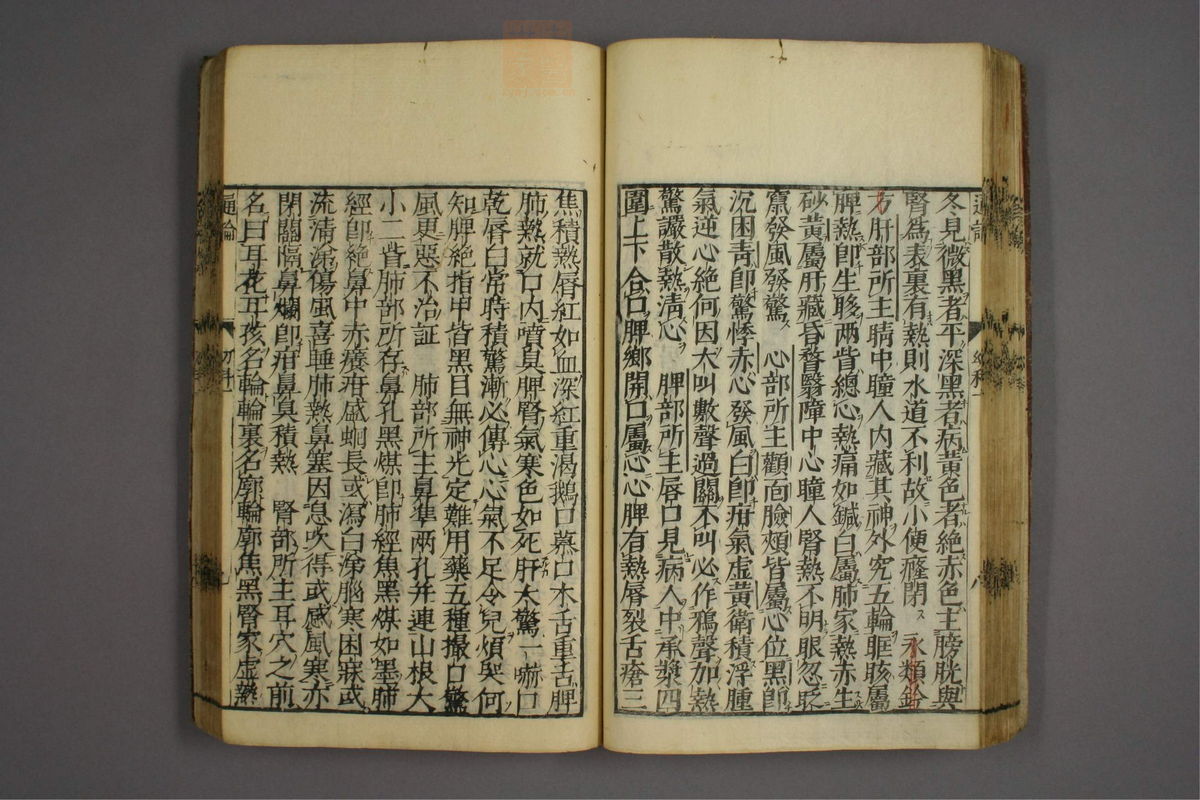 冬見微黑者平深黑者病黃色者絶赤色主膀胱與
腎爲表裏有熱則水道不利故小便癃閉 永類鈐
方肝部所主睛中瞳人内藏其神外究五輪眶胲屬
脾熱即生眵兩眥總心熱痛如鍼白屬肺家熱赤生
砂黃屬肝藏昏瞀翳障中心瞳人腎熱不明眼忽眨
竄發風發驚 心部所主顴面臉頰皆屬心位黑即
沉困青即驚悸赤心發風白即疳氣虚黃衛積浮腫
氣逆心絶何因大叫數聲過關不叫必作鴉聲加熱
驚讝散熱清心 脾部所主唇口見病人中承漿四
圍上下合口脾鄉開口屬心心脾有熱脣裂舌瘡三
焦積熱脣紅如血深紅重渴鵝口慕口木舌重舌脾
肺熱就口内噴臭脾腎氣寒色如死肝大驚一嚇口
乾唇白常時積驚漸必傳心心氣不足令兒煩哭何
知脾絶指甲皆黑目無神光定難用藥五種撮口驚
風更惡不治証 肺部所主鼻準兩孔并連山根大
小二眥肺部所存鼻孔黑煤即肺經焦黑煤如墨肺
經即絶鼻中赤癢疳慼蛔長或瀉白涕腦寒困寐或
流清涕傷風喜睡肺熱鼻塞因息吹得或感風寒亦
閉關膈鼻爛即疳鼻臭積熱 腎部所主耳穴之前
名曰耳花耳孩名輪輪裏名廓輪廓焦黑腎家虚熱
通論